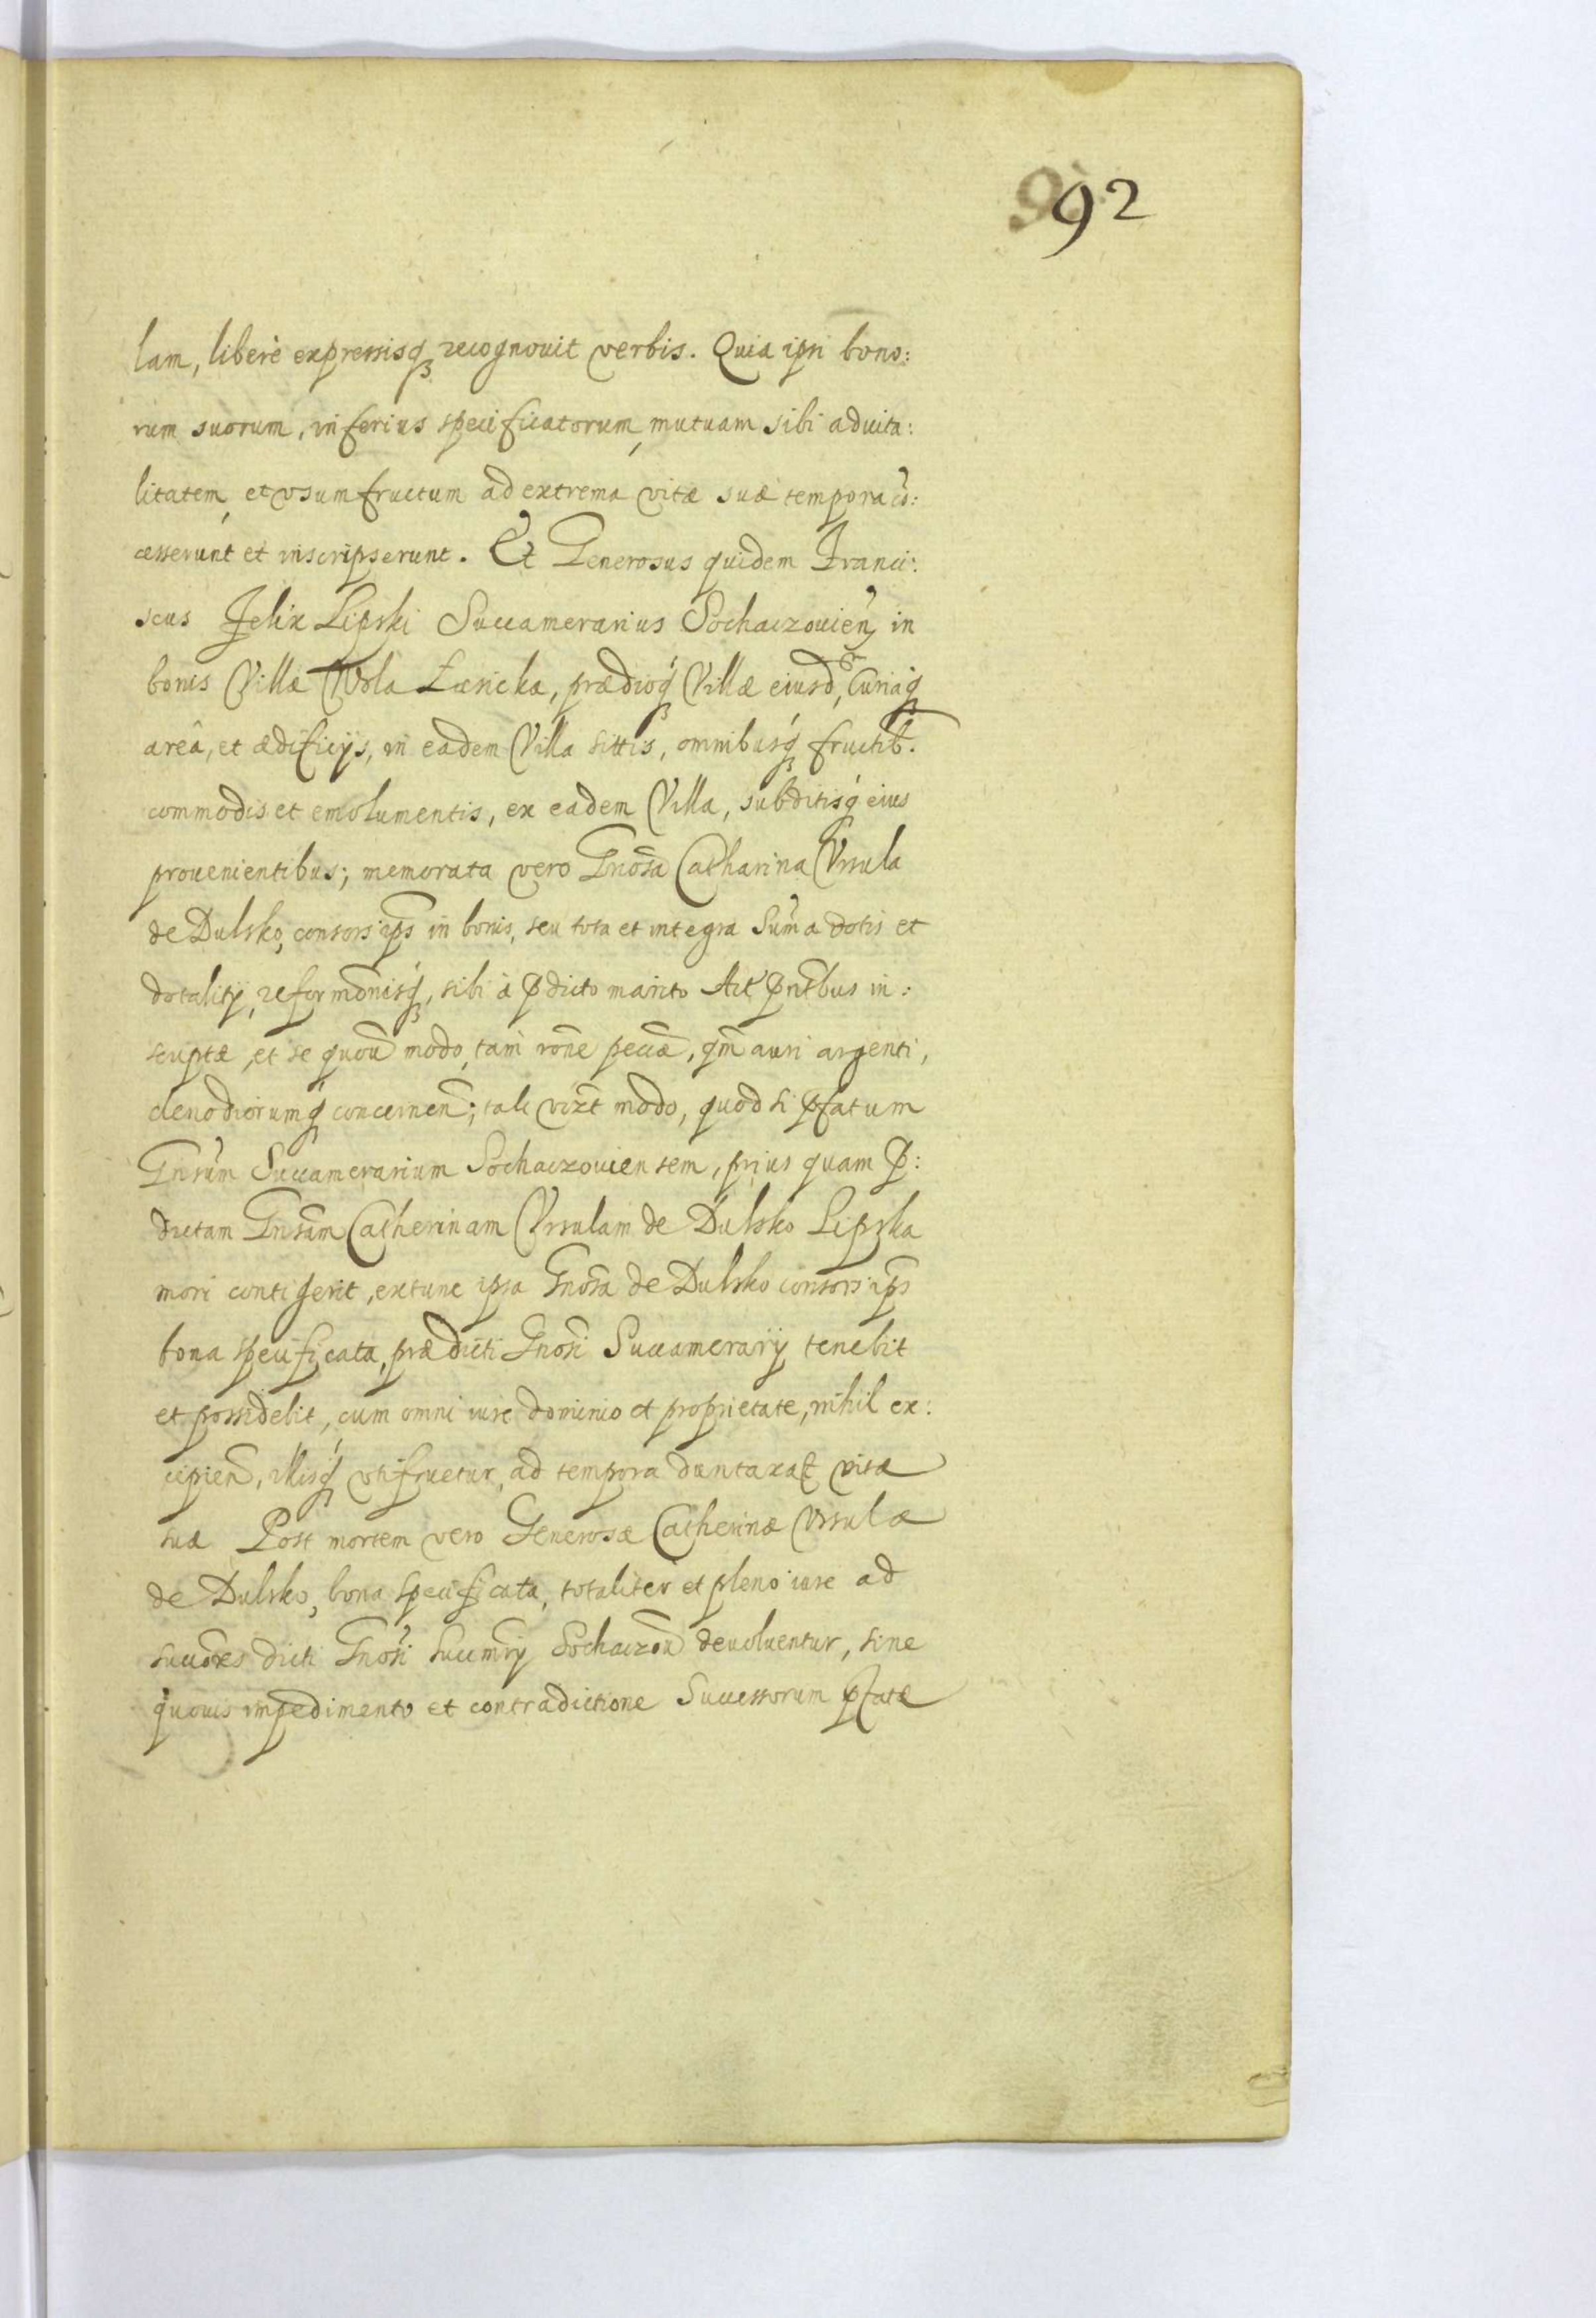 92
lam, liberè expressisq́ꝫ recognouit verbis. Quia ipsi bono:
rum suorum, inferius specificatorum, mutuam sibi aduita:
litatem, et vsumfructum ad extrema vitæ suæ tempora cõ:
cesserunt et inscripserunt. Et Generosus quidem Franci:
scus Felix Lipski Succamerarius Sochaczouień in
bonis Villæ Wola Łæsicka, prædioq́ꝫ Villæ eiusd, Curiaq́ꝫ
areâ, et ædificijs, in eadem Villa sittis, omnibusq́ꝫ fructib.
commodis et emolumentis, ex eadem Villa, subditisq́ꝫ eius
prouenientibus; memorata vero Gnõsa Catharina Vrsula
de Dulsko, consors ip̃s in bonis, seu tota et integra Sum̃a dotis et
dotalitij, reform̃onisq́ꝫ, sibi à p̃dicto marito Act p̃ntibus in:
scriptæ, et se quoũ modo, tam rõne pecũæ, qm̃ auri argenti,
clenodiorumq́ꝫ concerneñ; tali vizt modo, quod si p̃fatum
Gnsũm Succamerarium Sochaczouiensem, prius quam p̃:
dictam Gnsãm Catherinam Vrsulam de Dulsko Lipska
mori contigerit, extunc ipsa Gnõsa de Dulsko consors ip̃s
bona specificata, prædicti Gnõsi Succamerarij tenebit
et possidebit, cum omni iure dominio et proprietate, nihil ex:
cipieñ, illisq́ꝫ vtifruetur, ad tempora duntaxat vitæ
suæ Post mortem vero Generosæ Catherinæ Vrsulæ
de Dulsko, bona specificata, totaliter et pleno iure ad
succõres dicti Gnõsi Succm̃rij Sochaczoũ deuoluentur, sine
quouis impedimento et contradictione Successorum p̃fatæ